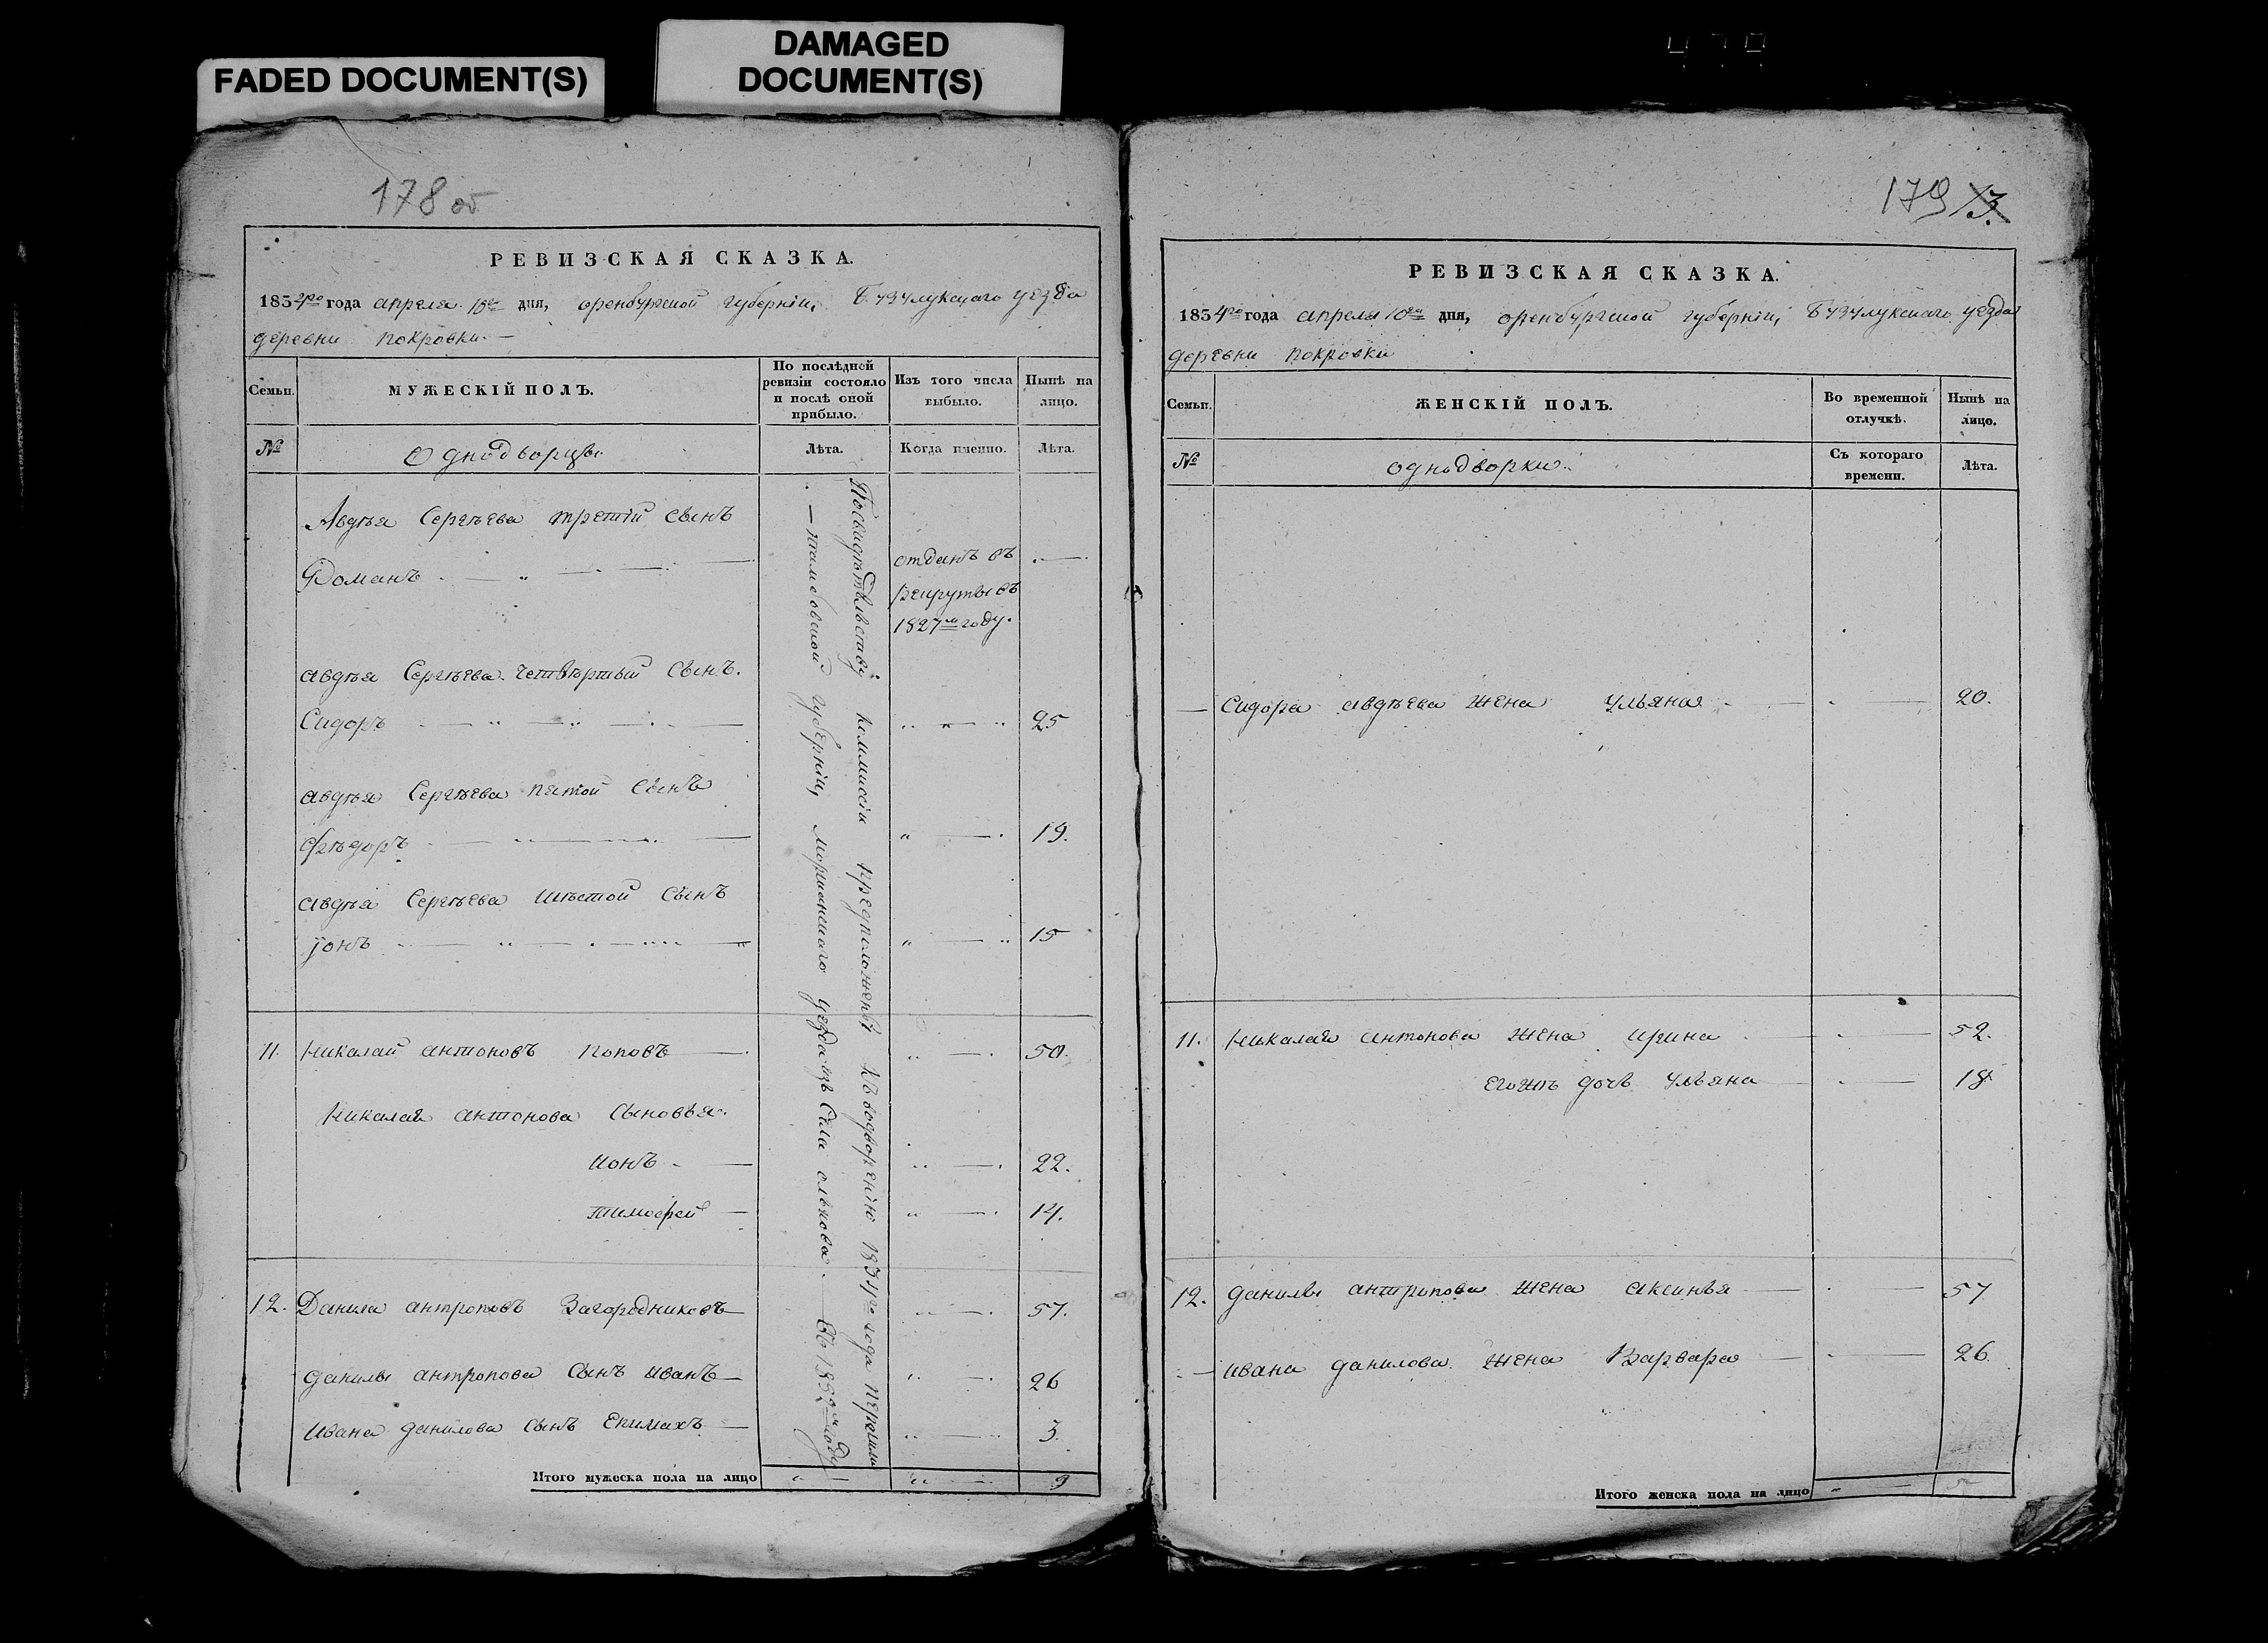 FADED DOCUMENT(S)
DAMAGED
DOCUMENT(S)
178 об
РЕВИЗСКАЯ СКАЗКА.
1834го года апреля 10го дня, оренбургской губернiи, Бузулукскаго уезда
деревни покровки.
Семьи.
МУЖЕСКIЙ ПОЛЪ.
По послѣдней
ревизiи состояло
и послѣ оной
прибыло.
Изъ того числа
выбыло.
Нынѣ на
лицо.
№
Однодворцы.
Лѣта.
Когда именно.
Лѣта.
Авдѣя Сергѣева третiй сынъ
Романъ
отданъ въ
рекруты въ
1827м году.
авдѣя Сергѣева четвѣртый сынъ.
Сидоръ 25
авдѣя Сергѣева пятой сынъ
Фѣдоръ 19.
авдѣя Сергѣева шѣстой сынъ
Iонъ 15
11. Николай антоновъ поповъ 50.
Николая антонова сыновья.
ионъ 22.
тимофей 14.
12. Данила антроповъ Загородниковъ 57.
данилы антропова сынъ иванъ 26
ивана данилова сынъ Екимахъ 3
По свидѣтельству коммисiи предположены къ водворенiю 1834го года перешли
тамбовской губернiи, моршанскаго уезда изъ села
въ 1832м году
Итого мужеска пола на лицо 9
179 13.
РЕВИЗСКАЯ СКАЗКА.
1834го года апреля 10го дня, оренбургской губернiи, Бузулукскаго уезда
деревни покровки
Семьи.
ЖЕНСКIЙ ПОЛЪ.
Во временной
отлучкѣ.
Нынѣ на
лицо.
№
однодворки.
Съ котораго
времени.
Лѣта.
Сидора авдѣева жена Ульяна 20.
11. Николая антонова жена ирина 52.
егожъ дочь Ульяна 18
12. данилы антропова жена аксинья 57
ивана данилова жена Варвара 26.
Итого женска пола на лицо 5